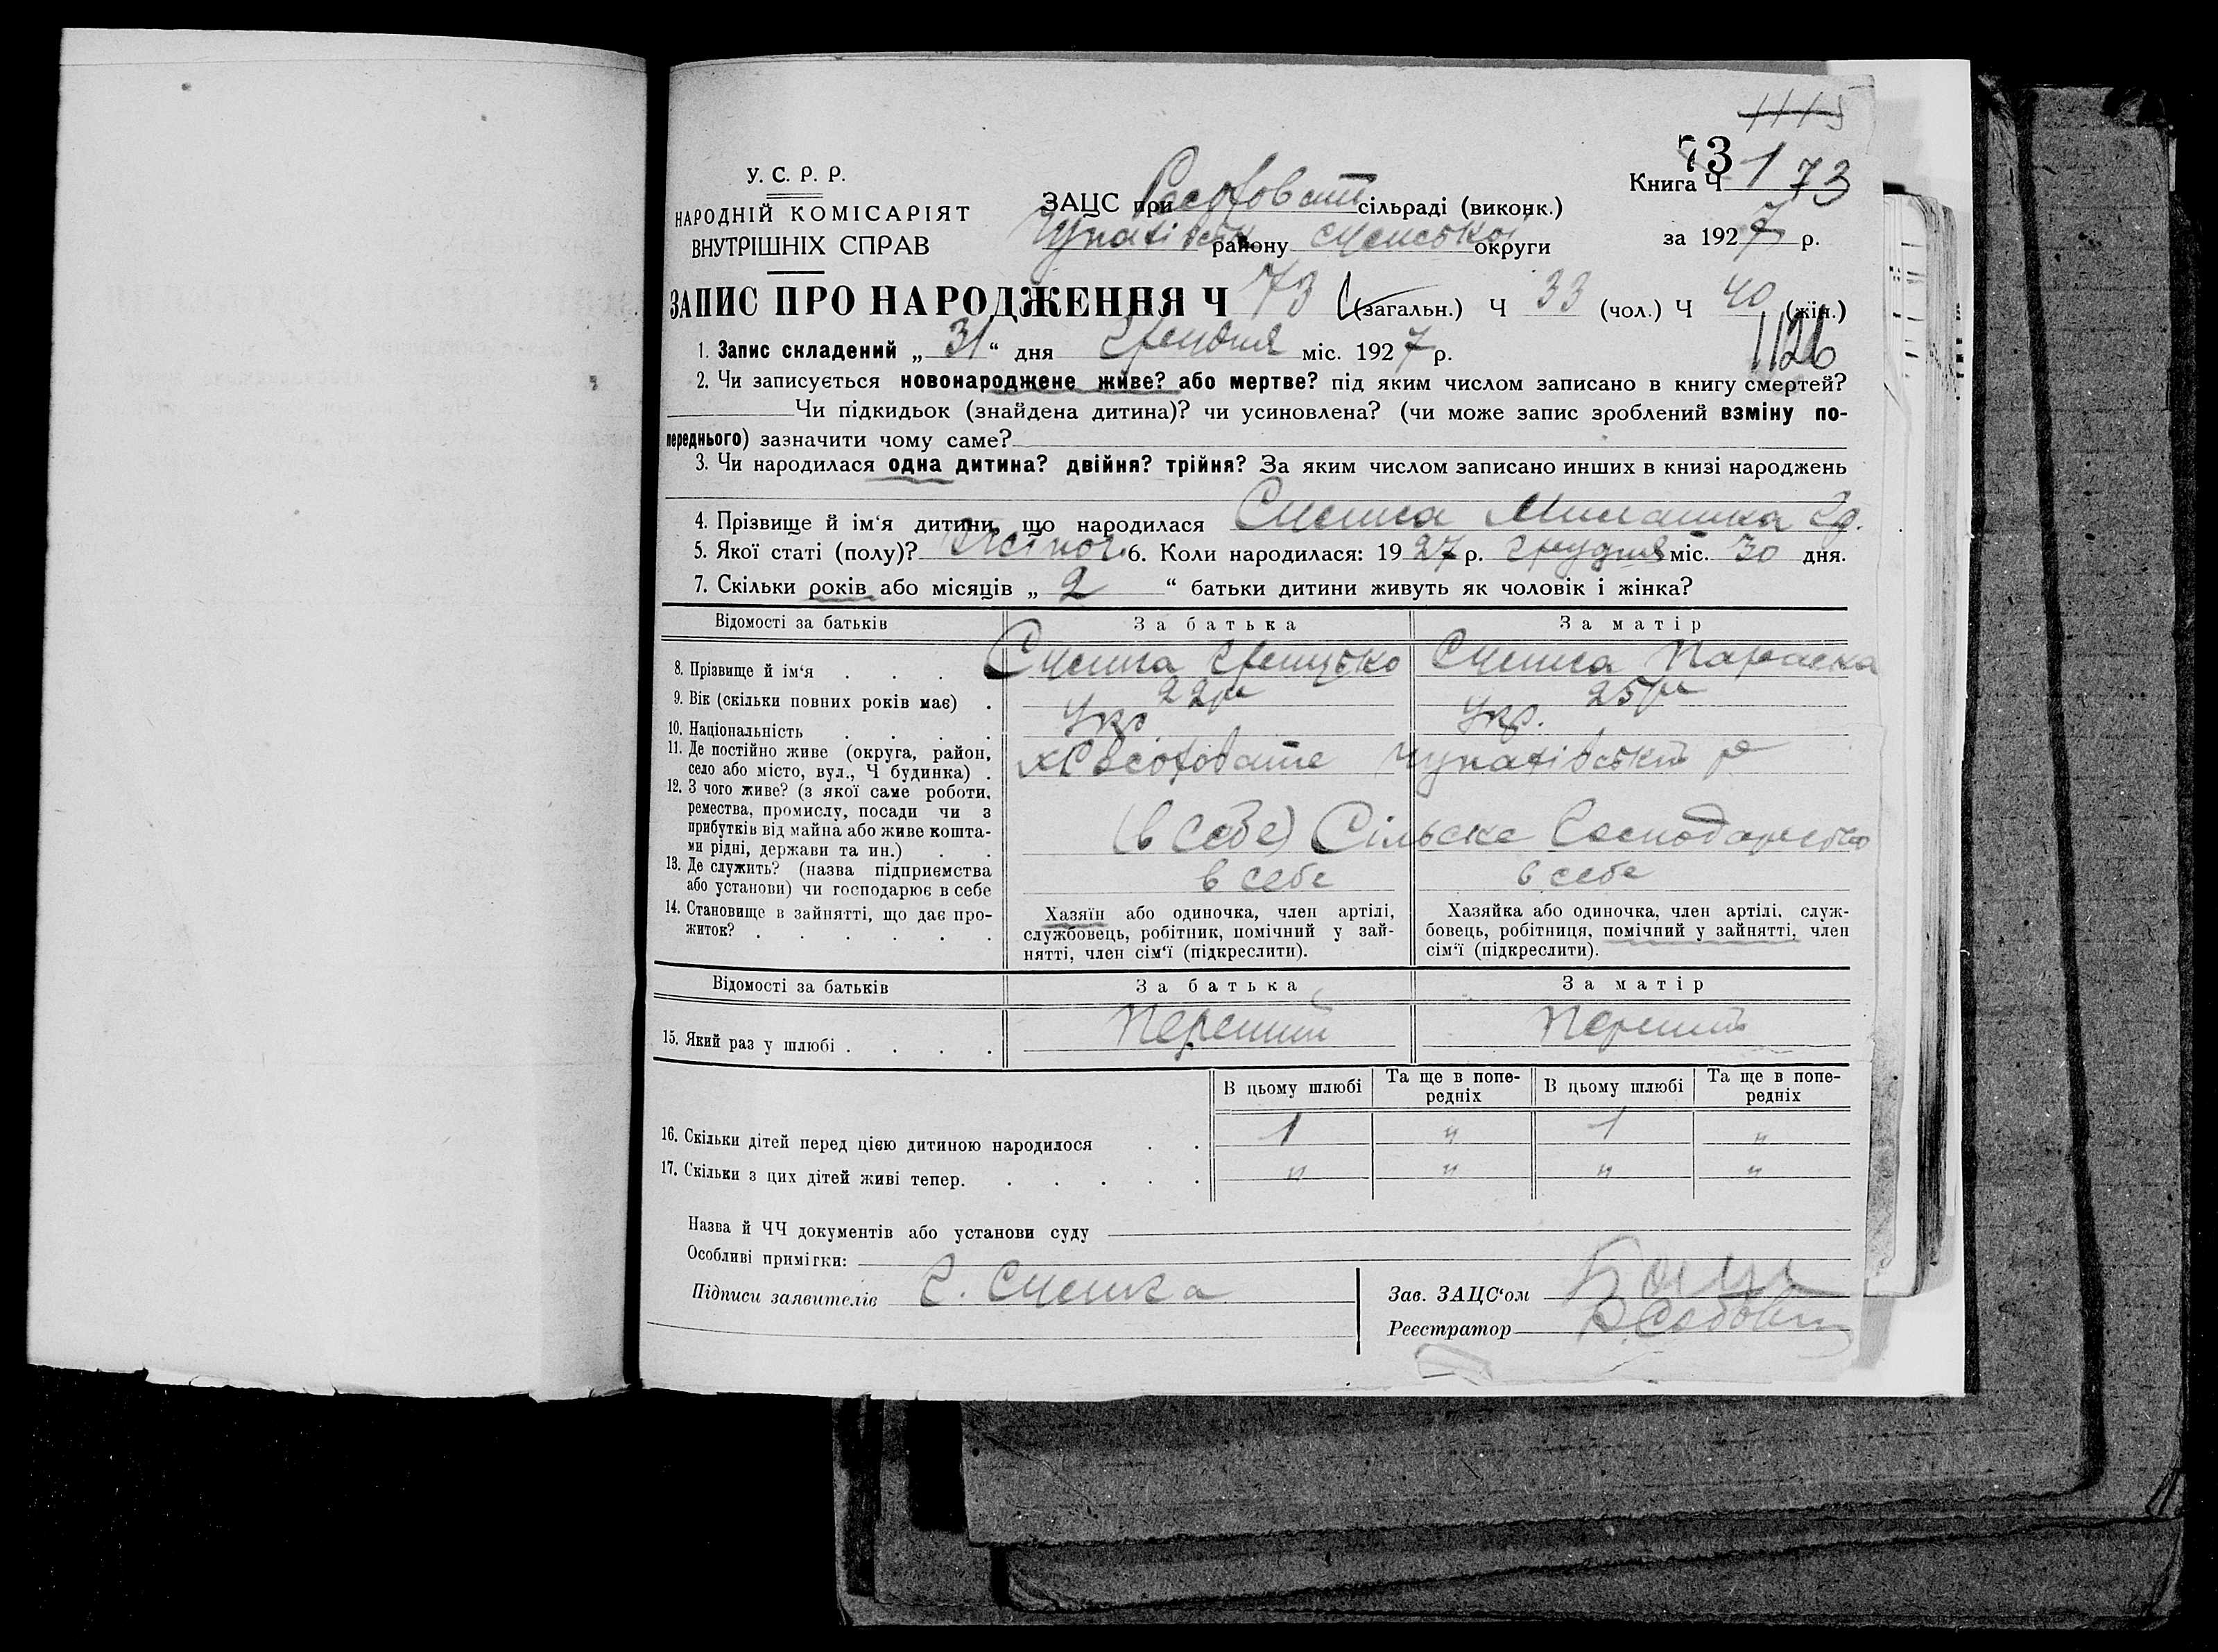 1115
73
У. С. Р. Р.
Книга Ч 1 73
НАРОДНІЙ КОМІСАРІЯТ
ЗАЦС при сільраді (виконк.)
ВНУТРІШНІХ СПРАВ
Чупахівськ району Сумської округи
за 1927 р.
ЗАПИС ПРО НАРОДЖЕННЯ Ч 73 (загальн.) Ч 33 (чол.) Ч 40 (жін.)
1126
1. Запис складений „ 31 “ дня Грендня міс. 1927 р.
2. Чи записується новонароджене живе? або мертве? під яким числом записано в книгу смертей?
Чи підкидьок (знайдена дитина)? чи усиновлена? (чи може запис зроблений взміну по-
переднього) зазначити чому саме?
3. Чи народилася одна дитина? двійня? трійня? За яким числом записано инших в книзі народжень
4. Прізвище й ім‘я дитини, що народилася
5. Якої статі (полу)? Жіноч. 6. Коли народилася: 1927 р. грудня міс. 30 дня.
7. Скільки років або місяців „ 2 “ батьки дитини живуть як чоловік і жінка?
Відомості за батьків За батька За матір
8. Прізвище й ім‘я . . . Грицько Параска
9. Вік (скільки повних років має) . 22 р 25 р
10. Національність . . . . Укр. Укр.
11. Де постійно живе (округа, район,
село або місто, вул., Ч будинка) . Чупахівський р
12. З чого живе? (з якої саме роботи,
ремества, промислу, посади чи з
прибутків від майна або живе кошта-
ми рідні, держави та ин.) . . (в себе) Сільске Господарство
13. Де служить? (назва підприємства
або установи) чи господарює в себе в себе в себе
14. Становище в зайнятті, що дає про-
житок? . . . . . .
Хазяїн або одиночка, член артілі,
службовець, робітник, помічний у зай-
нятті, член сім‘ї (підкреслити).
Хазяйка або одиночка, член артілі, служ-
бовець, робітниця, помічний у зайнятті, член
сім‘ї (підкреслити).
Відомості за батьків За батька За матір
15. Який раз у шлюбі . . . . Перший Перший
В цьому шлюбі Та ще в попе- В цьому шлюбі Та ще в попе-
редніх редніх
16. Скільки дітей перед цією дитиною народилося . . 1 " 1 "
17. Скільки з цих дітей живі тепер. . . . . . " " " "
Назва й ЧЧ документів або установи суду
Особливі примітки:
Підписи заявителів Г.
Зав. ЗАЦС‘ом
Реєстратор